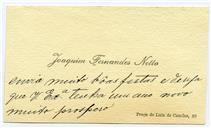 Joaquim Fernandes Netto
envia muito bôas festas e deseja
que V. Exª tenha um ano novo
muito prospero
Praça de Luis de Camões, 20